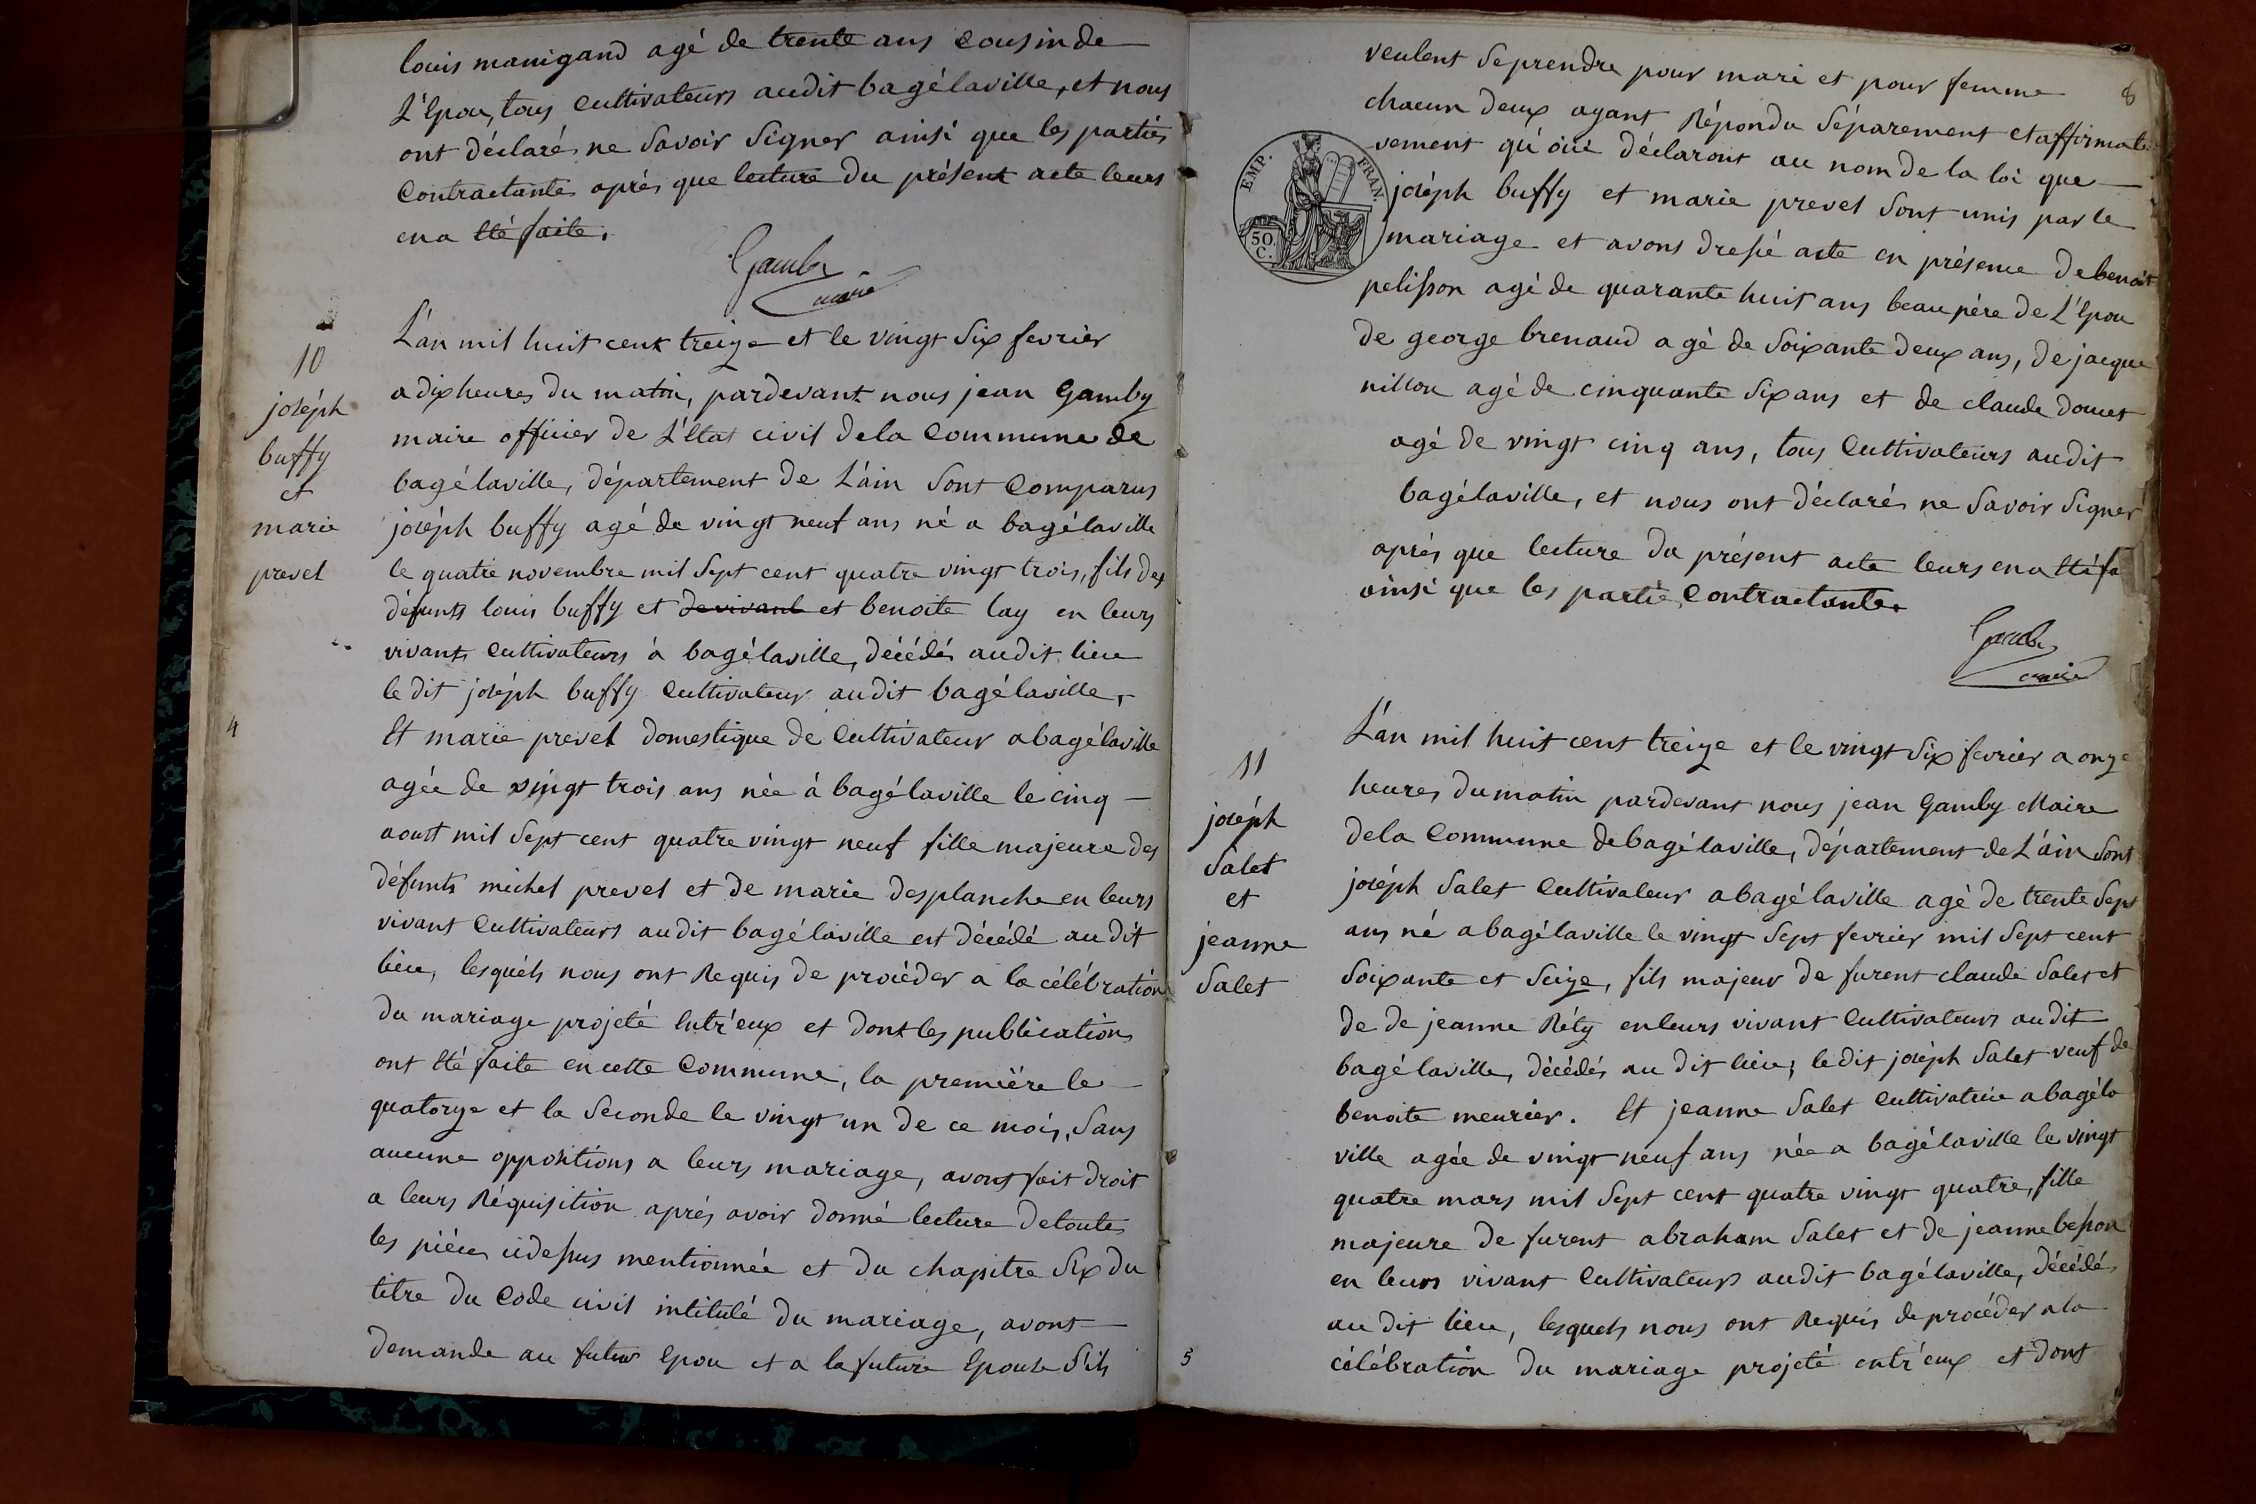 louis manigand agé de trente ans cousin de
L'Epou, tous Cultivateurs audit bagélaville, et nous
ont déclarés ne Savoir Signer ainsi que les parties
Contractantes après que lecture du présent acte leurs
en a été faite.
Gamby
maire
10
joséph
buffy
et
marie
prevel
L'án mil huit cent treize et le vingt Six fevrier
a dix heures du matin, pardevant nous jean Gamby
maire officier de L'état civil de la Commune de
bagélaville, département de L'áin Sont Comparus
joséph buffy agé de vingt neuf ans né a bagélaville
le quatre novembre mil Sept cent quatre vingt trois, fils des
défunts louis buffy et de vivant et benoite lay en leurs
vivants Cultivateurs à bagélaville, décédés audit lieu
le dit joséph buffy Cultivateur audit bagélaville,
Et marie prevel domestique de Cultivateur a bagélaville
4
agée de vingt trois ans née à bagélaville le cinq
aoust mil Sept cent quatre vingt neuf fille majeure des
défunts michel prevel et de marie desplanche en leurs
vivant Cultivateurs audit bagélaville est décédé au dit
lieu, lesquéls nous ont Requis de procéder a la célébration
du mariage projeté Entr'eux et dont les publications
ont été faite en cette Commune, la première le
quatorze et la Seconde le vingt un de ce mois, Sans
aucune oppositions a leurs mariage, avons fait droit
a leurs Réquisition après avoir donné lecture de toutes
les piéces cidessus mentionnée et du chapitre Six du
titre du Code civil intitulé du mariage, avons
demande au futur Epou et a la future Epouse S'ils
8
veulent Se prendre pour mari et pour femme
chacun deux ayant Répondu Séparement et affirmati
vement qu'óui déclarons au nom de la loi que
joséph buffy et marie prevel Sont unis par le
mariage et avons dressé acte en présence de benoit
pelisson agé de quarante huit ans beau père de L'Epou
de george brenaud agé de Soixante deux ans, de jacque
nillon agé de cinquante Six ans et de claude doucet
agé de vingt cinq ans, tous Cultivateurs audit
bagélaville, et nous ont déclarés ne Savoir Signer
après que lecture du présent acte leurs en a été fa
ainsi que les partie Contractante.
EMP. FRAN.
50
C.
Gamby
maire
11
joséph
Salet
et
jeanne
Salet
L'án mil huit cent treize et le vingt Six fevrier a onze
heures du matin pardevant nous jean Gamby Maire
de la Commune de bagélaville, département de L'áin Sont
joséph Salet Cultivateur a bagélaville agé de trente Sept
ans né a bagélaville le vingt Sept fevrier mil Sept cent
Soixante et Seize, fils majeur de furent claude Salet et
de de jeanne Réty en leurs vivant Cultivateurs audit
bagélaville, décédés au dit lieu; le dit joséph Salet veuf de
benoite meurier. Et jeanne Salet Cultivatrice a bagéla
ville agée de vingt neuf ans née a bagélaville le vingt
quatre mars mil Sept cent quatre vingt quatre, fille
majeure de furent abraham Salet et de jeanne besson
en leurs vivant Cultivateurs audit bagélaville, décédés
au dit lieu, lesquels nous ont Requis de procéder a la
célébration du mariage projeté entr'eux et dont
5